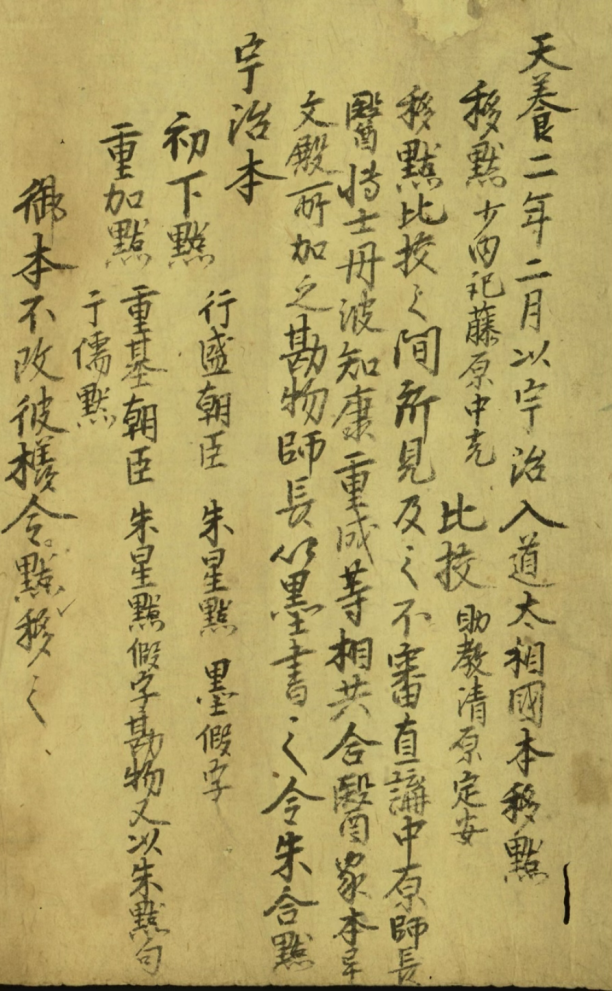 天養二年二月以宇治入道太相國本移點
移點 少内記藤原中光 比挍 助教清原定安
移點比挍之間所見及之不審直講中原師長
醫博士丹波知康重成等相共合醫家本畢
文殿所加之勘物師長以墨書之令朱合點
宇治本
初下點 行盛朝臣 朱星點 墨假字
重加點 重基朝臣 朱星點假字勘物又以朱點句
于儒點
御本不改彼樣令點移之